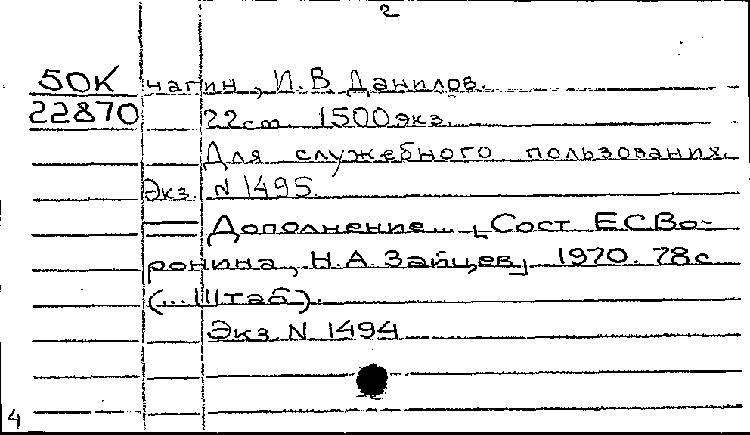 2
50К чагин, И.В Данилов.
22870 22см 1500экз.
Для служебного пользования.
Экз. N 1495.
Дополнение... [Сост Е С Во-
ронина, Н.А. Зайцев] 1970. 78с
(... Штаб).
Экз N 1494
4